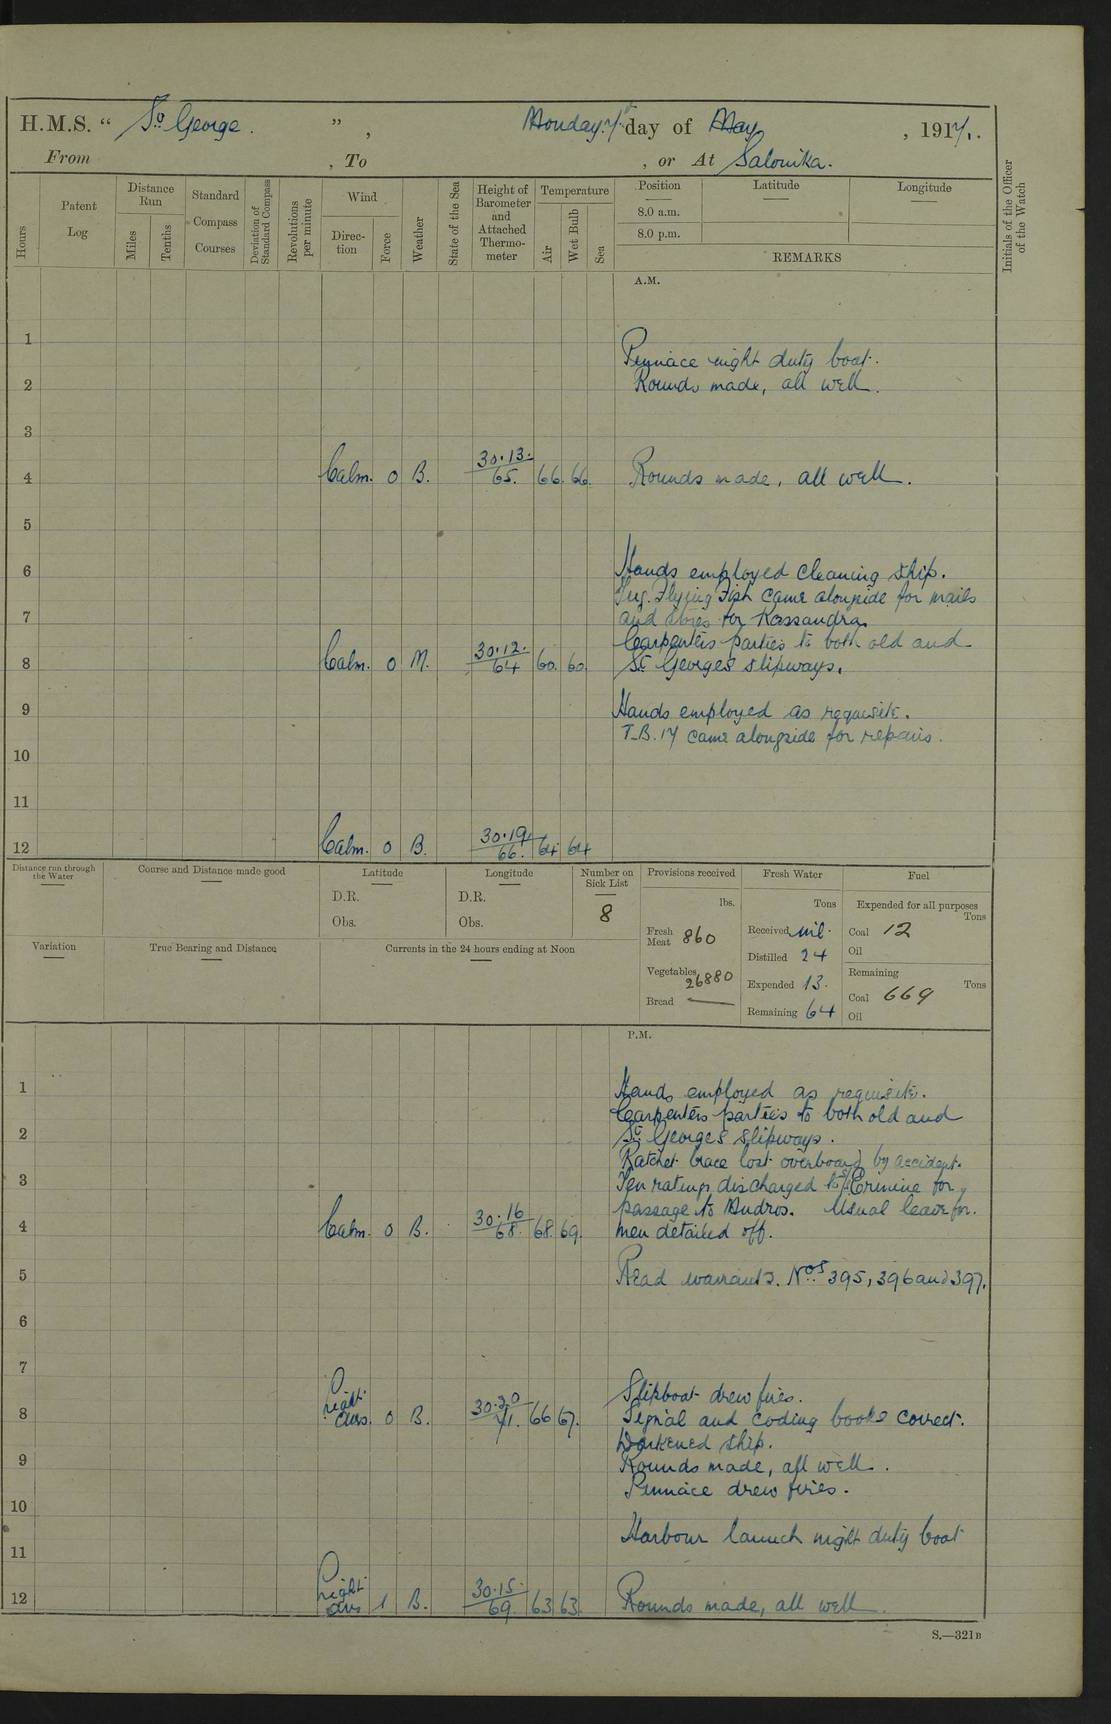 H.M.S. " St George. ", Monday 7th day of May, 1917.
From , To , or At Salonika.
Hours
Patent Log
Distance Run
Miles
Tenths
Standard Compass Courses
Deviation of Standard Compass
Revolutions per minute
Wind
Direction
Force
Weather
State of the Sea
Height of Barometer and Attached Thermometer
Temperature
Air
Wet Bulb
Sea
Position Latitude Longitude
8.0 a.m.
8.0 p.m.
REMARKS
Initials of the Officer of the Watch
A.M.
1
Pinnace night duty boat.
2 Rounds made, all well.
3
4 Calm. 0 B. 30.13. 65. 66. 66. Rounds made, all well.
5
6 Hands employed cleaning ship.
Tug. Flying Fish came alongside for mails
7 and stores for Kassandra.
Carpenters parties to both old and
8 Calm. 0 M. 30.12. 64 60. 60. St Georges slipways.
9 Hands employed as requisite.
T.B. 17 came alongside for repairs.
10
11
12 Calm. 0 B. 30.19. 66. 64. 64
Distance run through the Water
Course and Distance made good
Latitude
D.R.
Obs.
Longitude
D.R.
Obs.
Number on Sick List
8
Provisions received
lbs.
Fresh Meat 860
Vegetables 26880
Bread —
Fresh Water
Tons
Received nil.
Distilled 24
Expended 13.
Remaining 64
Fuel
Expended for all purposes
Tons
Coal 12
Oil
Remaining
Tons
Coal 669
Oil
Variation
True Bearing and Distance
Currents in the 24 hours ending at Noon
P.M.
1 Hands employed as requisite.
Carpenters parties to both old and
2 St Georges slipways.
Ratchet brace lost overboard by accident.
3 Ten ratings discharged to Ermine for
passage to Mudros. Usual leave for
4 Calm. 0 B. 30.16 68. 68. 69. men detailed off.
5 Read warrants. Nos 395, 396 and 397.
6
7
Slipboat drew fires.
8 Light airs. 0 B. 30.20 71. 66 67. Signal and coding books correct.
Darkened ship.
9 Rounds made, all well.
Pinnace drew fires.
10
Harbour launch night duty boat
11
12 Light airs 1 B. 30.15. 69. 63 63. Rounds made, all well.
S.—321B